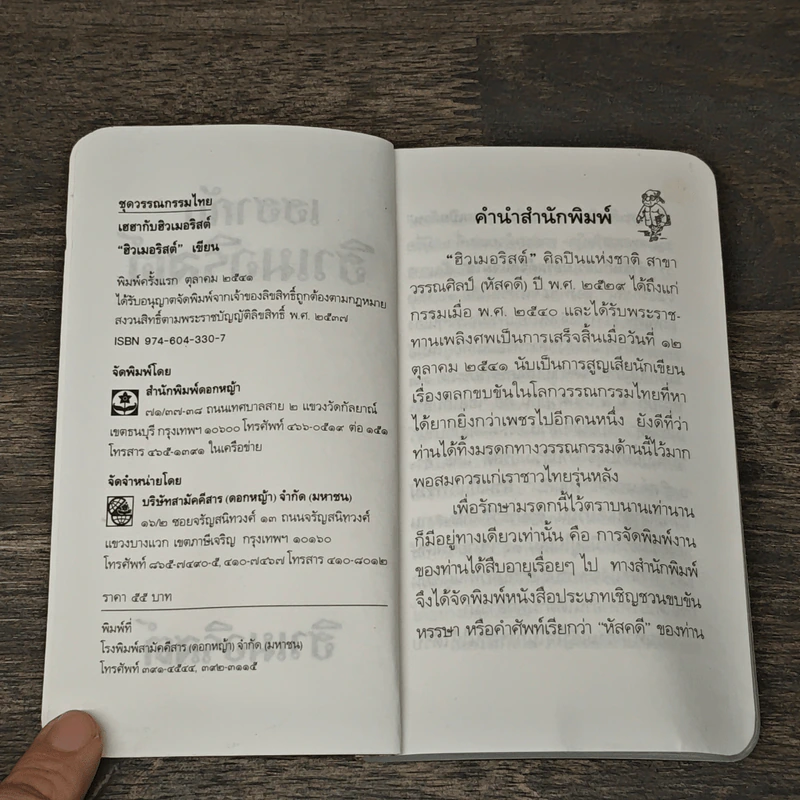 ชุดวรรณกรรมไทย
เฮฮากับฮิวเมอริสต์
“ฮิวเมอริสต์” เขียน
พิมพ์ครั้งแรก ตุลาคม ๒๕๔๑
ได้รับอนุญาตจัดพิมพ์จากเจ้าของลิขสิทธิ์ถูกต้องตามกฎหมาย
สงวนสิทธิ์ตามพระราชบัญญัติลิขสิทธิ์ พ.ศ. ๒๕๓๗
ISBN 974-604-330-7
จัดพิมพ์โดย
สำนักพิมพ์ดอกหญ้า
๗๑/๓๗-๓๘ ถนนเทศบาลสาย ๒ แขวงวัดกัลยาณ์
เขตธนบุรี กรุงเทพฯ ๑๐๖๐๐ โทรศัพท์ ๔๖๖-๐๕๑๙ ต่อ ๑๕๑
โทรสาร ๔๖๕-๑๓๙๑ ในเครือข่าย
จัดจำหน่ายโดย
บริษัทสามัคคีสาร (ดอกหญ้า) จำกัด (มหาชน)
๑๖/๒ ซอยจรัญสนิทวงศ์ ๑๓ ถนนจรัญสนิทวงศ์
แขวงบางแวก เขตภาษีเจริญ กรุงเทพฯ ๑๐๑๖๐
โทรศัพท์ ๘๖๕-๗๔๙๐-๕, ๔๑๐-๗๔๖๗ โทรสาร ๔๑๐-๘๐๑๒
ราคา ๕๕ บาท
พิมพ์ที่
โรงพิมพ์สามัคคีสาร (ดอกหญ้า) จำกัด (มหาชน)
โทรศัพท์ ๓๙๑-๔๕๔๔, ๓๙๒-๓๑๑๕
คำนำสำนักพิมพ์
“ฮิวเมอริสต์” ศิลปินแห่งชาติ สาขา
วรรณศิลป์ (หัสคดี) ปี พ.ศ. ๒๕๒๙ ได้ถึงแก่
กรรมเมื่อ พ.ศ. ๒๕๔๐ และได้รับพระราช-
ทานเพลิงศพเป็นการเสร็จสิ้นเมื่อวันที่ ๑๒
ตุลาคม ๒๕๔๑ นับเป็นการสูญเสียนักเขียน
เรื่องตลกขบขันในโลกวรรณกรรมไทยที่หา
ได้ยากยิ่งกว่าเพชรไปอีกคนหนึ่ง ยังดีที่ว่า
ท่านได้ทิ้งมรดกทางวรรณกรรมด้านนี้ไว้มาก
พอสมควรแก่เราชาวไทยรุ่นหลัง
เพื่อรักษามรดกนี้ไว้ตราบนานเท่านาน
ก็มีอยู่ทางเดียวเท่านั้น คือ การจัดพิมพ์งาน
ของท่านได้สืบอายุเรื่อยๆ ไป ทางสำนักพิมพ์
จึงได้จัดพิมพ์หนังสือประเภทเชิญชวนขบขัน
หรรษา หรือคำศัพท์เรียกว่า “หัสคดี” ของท่าน